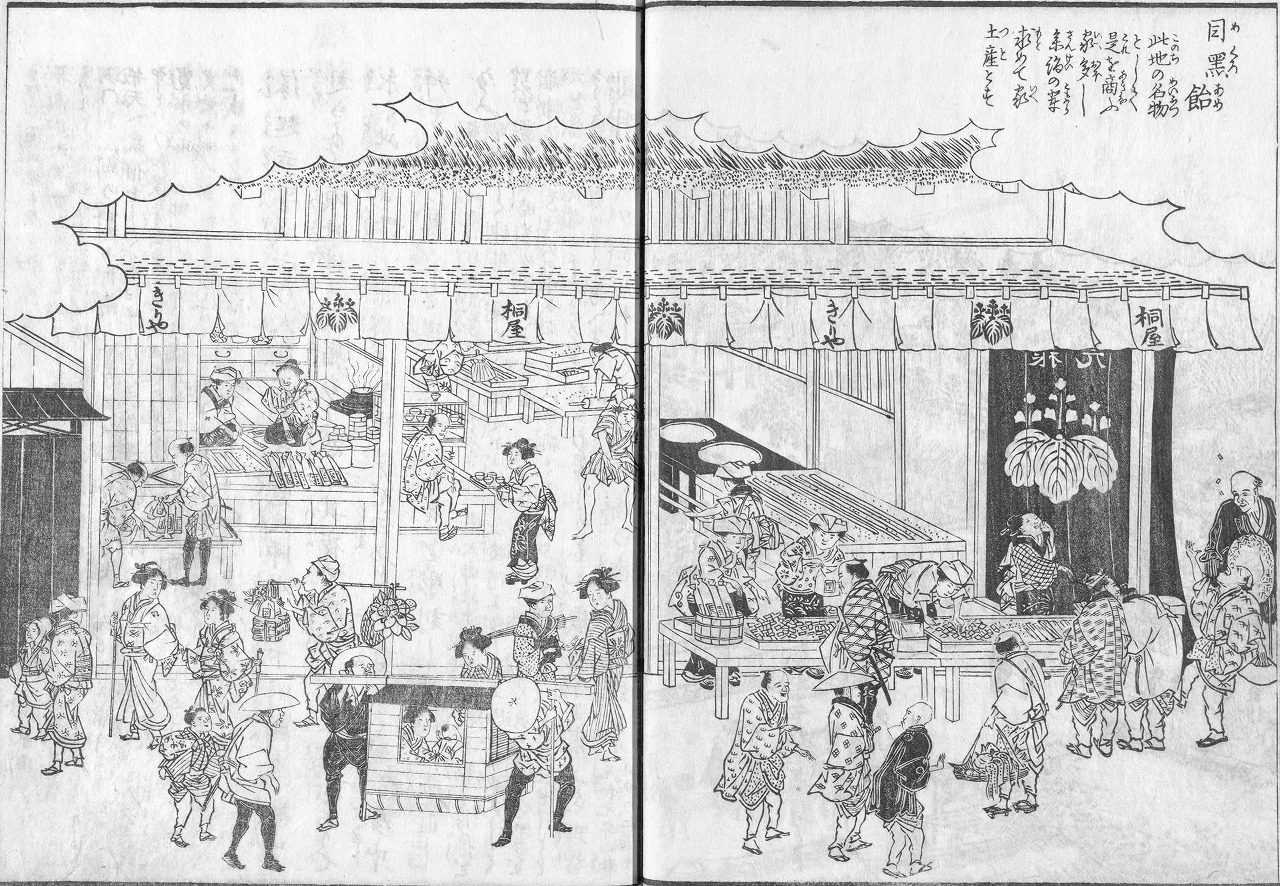 目黑飴
此地の名物
として
是を商ふ
家多し
参詣の輩
求めて家
土産とす
桐屋
きりや
桐屋
きりや